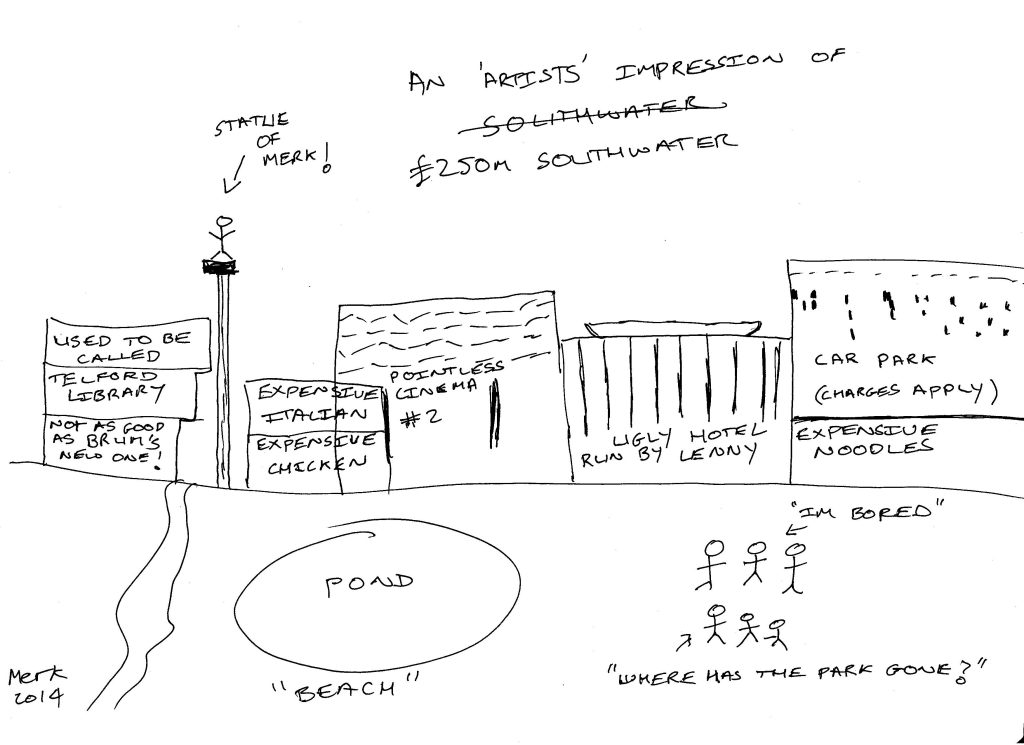 AN 'ARTISTS' IMPRESSION OF
SOUTHWATER
£250M SOUTHWATER
STATUE
OF
MERK!
USED TO BE
CALLED
TELFORD
LIBRARY
NOT AS GOOD
AS BRUM'S
NEW ONE!
EXPENSIVE
ITALIAN
EXPENSIVE
CHICKEN
POINTLESS
CINEMA
#2
UGLY HOTEL
RUN BY LENNY
CAR PARK
(CHARGES APPLY)
EXPENSIVE
NOODLES
"IM BORED"
POND
"BEACH"
"WHERE HAS THE PARK GONE?"
Merk
2014